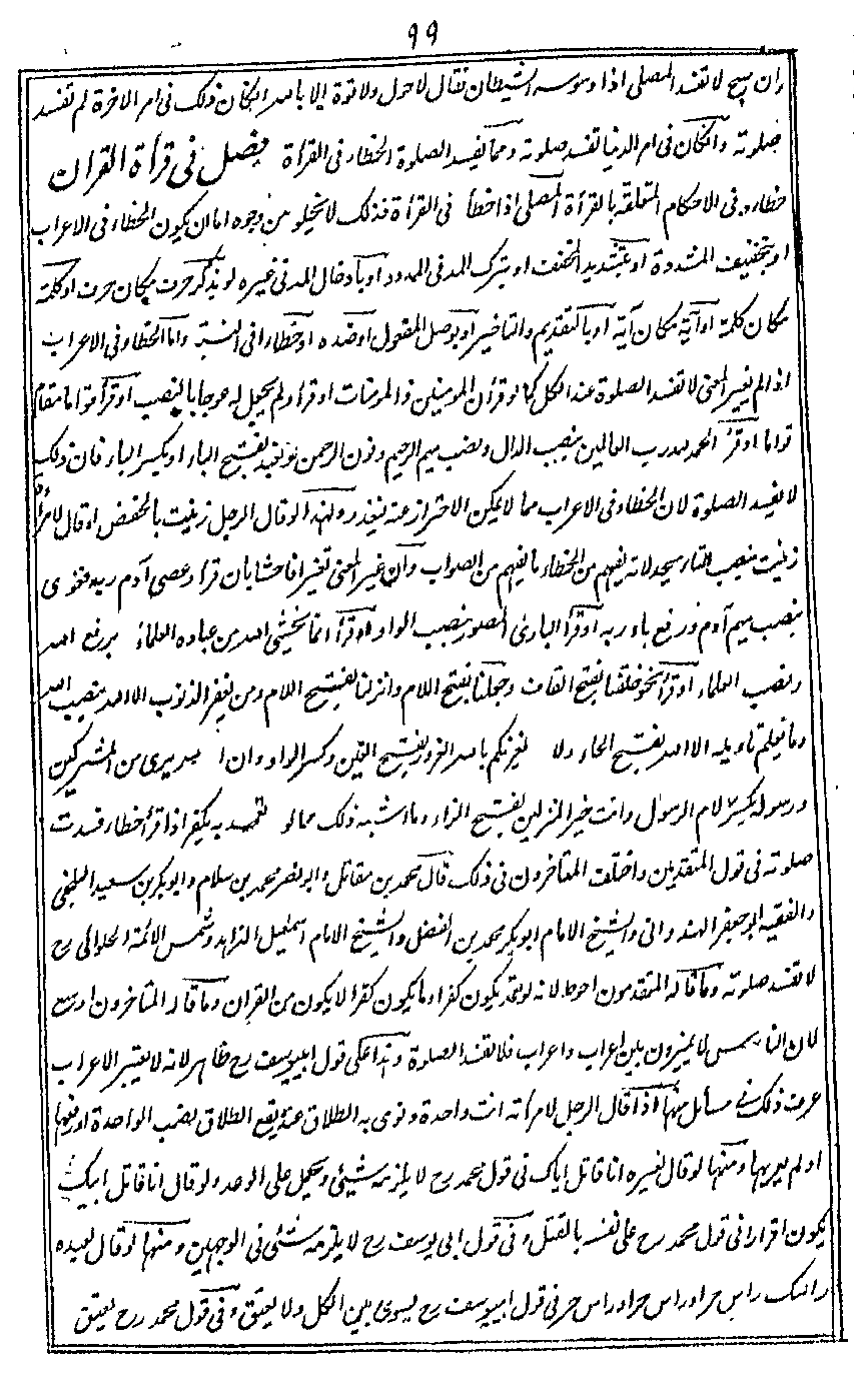 ٩٩
وان سبح لا تفسد المصلى اذا وسوسه الشيطان فقال لا حول ولا قوة الا بالله ان كان ذلك فى امر الاخرة لم تفسد
صلوته وان كان فى امر الدنيا تفسد صلوته ومما يفسد الصلوة الخطاء فى القرأة فصل فى قرأة القران
خطاء وفى الاحكام المتعلقة بالقرأة المصلى اذا خطأ فى القرأة فذلك لا يخلو من وجوه اما ان يكون الخطاء فى الاعراب
او بتخفيف المشددة او بتشديد المخفف او بترك المد فى الممدود او بادخال المد فى غيره او بذكر حرف مكان حرف او كلمة
مكان كلمة او آية مكان آية او بالتقديم والتاخير او بوصل المفصول او ضده او خطاء فى النسبة واما الخطاء فى الاعراب
اذا لم يغير المعنى لا تفسد الصلوة عند الكل كما لو قرأ ان المومنين والمومنات او قرأ ولم يجعل له عوجا بالنصب او قرأ قواما مقام
قواما او قرأ الحمد لله رب العالمين بنصب الدال وبنصب ميم الرحيم ونون الرحمن او نعبد بفتح الباء او بكسر الباء فان ذلك
لا يفسد الصلوة لان الخطاء فى الاعراب مما لا يمكن الاحتراز عنه فيعذر ولهذا لو قال الرجل زنيت بالخفض او قال لامرأة
زنيت بنصب التاء يحد لانه يفهم من الخطاء ما يفهم من الصواب وان غير المعنى تغييرا فاحشا بان قرأ وعصى آدم ربه فغوى
بنصب ميم آدم ورفع باء ربه او قرأ البارئ المصور بنصب الواو او قرأ انما يخشى الله من عباده العلماء برفع الله
ونصب العلماء او قرأ نحو خلقنا بفتح القاف وجعلنا بفتح اللام وانزلنا بفتح اللام ومن يغفر الذنوب الا الله بنصب الله
وما يعلم تاويله الا الله بفتح الهاء ولا يغرنكم بالله الغرور بفتح الغين وكسر الواو وان الله برىء من المشركين
ورسوله بكسر لام الرسول وانت خير المنزلين بفتح الزاء وما اشبه ذلك مما لو تعمد به يكفر اذا قرأ خطاء فسدت
صلوته فى قول المتقدمين واختلف المتأخرون فى ذلك قال محمد بن مقاتل وابو نصر محمد بن سلام وابو بكر بن سعيد البلخى
والفقيه ابو جعفر الهندوانى والشيخ الامام ابو بكر محمد بن الفضل والشيخ الامام اسمعيل الزاهد وشمس الائمة الحلوانى رح
لا تفسد صلوته وما قاله المتقدمون احوط لانه لو تعمد يكون كفرا وما يكون كفرا لا يكون من القران وما قاله المتاخرون اوسع
لان الناس لا يميزون بين اعراب واعراب فلا تفسد الصلوة وهذا على قول ابى يوسف رح ظاهر لانه لا يعتبر الاعراب
عرف ذلك فى مسائل منها اذا قال الرجل لامرأته انت واحدة ونوى به الطلاق عنده يقع الطلاق بنصب الواحدة او رفعها
او لم يعربها ومنها لو قال لغيره انا قاتل اباك فى قول محمد رح لا يلزمه شيئ ويحمل على الوعد ولو قال انا قاتل ابيك
يكون اقرارا فى قول محمد رح على نفسه بالقتل وفى قول ابى يوسف رح لا يلزمه شئى فى الوجهين ومنها لو قال لعبده
راسك راس حر او راس حرا وراس حر فى قول ابى يوسف رح يسوى بين الكل ولا يعتق وفى قول محمد رح يعتق